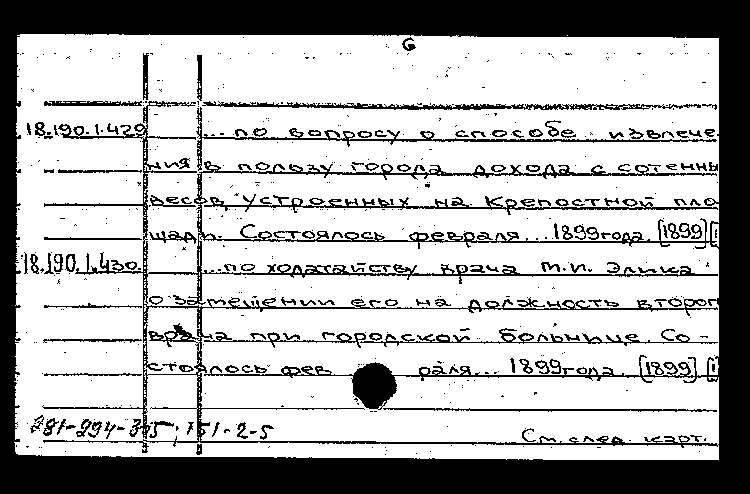 G
18.190.1.429 ...по вопросу о способе извлече
ния в пользу города дохода с сотенны
весов, устроенных на Крепостной пло
щади. Состоялось февраля... 1899 года. [1899] [1
18.190.1.430. ...по ходатайству врача М.И. Элика
о замещении его на должность второг
врача при городской больнице. Со-
стоялось фев раля... 1899 года. [1899] [1
281-294-315; 151-2-5
См. след. карт.